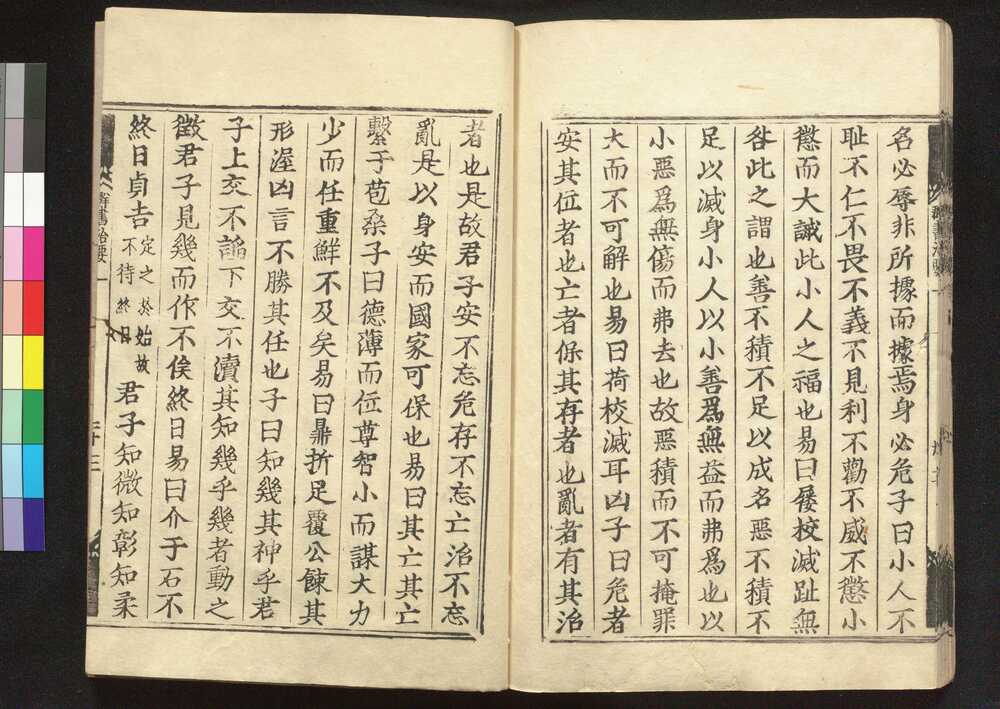 名必辱非所據而據焉身必危子曰小人不
耻不仁不畏不義不見利不勸不威不懲小
懲而大誡此小人之福也易曰屨校滅趾無
咎此之謂也善不積不足以成名惡不積不
足以滅身小人以小善爲無益而弗爲也以
小惡爲無傷而弗去也故惡積而不可掩罪
大而不可解也易曰荷校滅耳凶子曰危者
安其位者也亡者保其存者也亂者有其治
者也是故君子安不忘危存不忘亡治不忘
亂是以身安而國家可保也易曰其亡其亡
繫于苞桑子曰德薄而位尊智小而謀大力
少而任重鮮不及矣易曰鼎折足覆公餗其
形渥凶言不勝其任也子曰知幾其神乎君
子上交不諂下交不瀆其知幾乎幾者動之
徵君子見幾而作不俟終日易曰介于石不
終日貞吉定之於始故不待終日君子知微知彰知柔
群書治要一
二十三